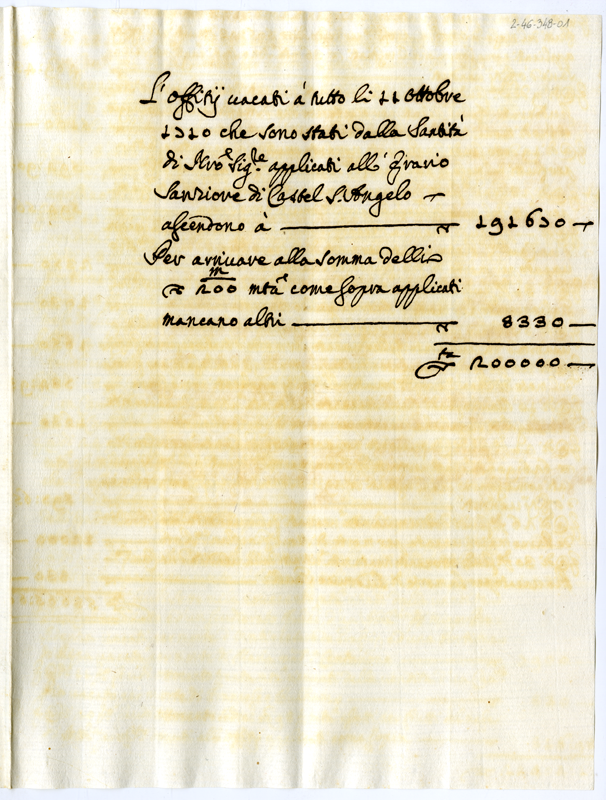 2-46-348-01
L'offitij vacati à tutto li 11 ottobre
1710 che sono stati dalla Santità
di Nro Sigre applicati all'Erario
Sanziore di Castel S. Angelo
ascendono à 191630
Per arrivare alla somma delli
m
200 mta come sopra applicati
mancano altri 8330
200000